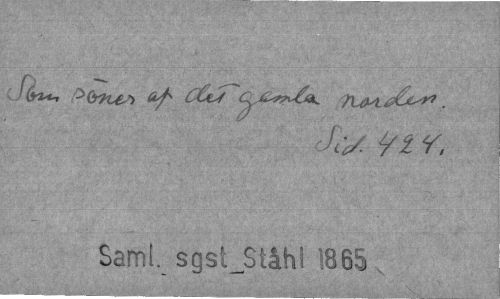 Som söner af det gamla norden.
Sid. 424.
Saml. sgst_Ståhl 1865